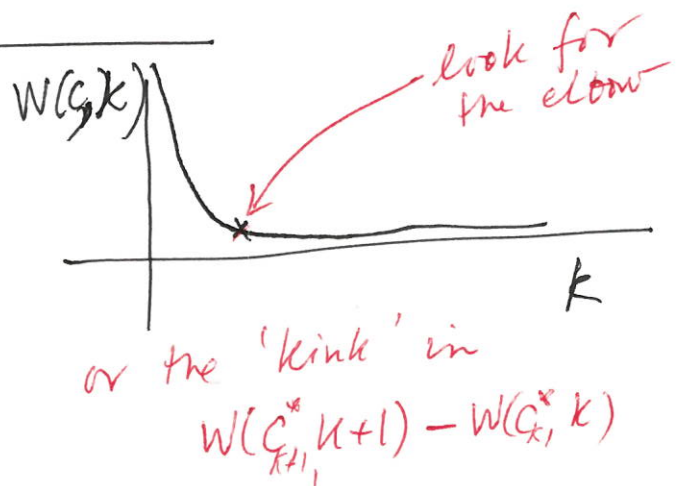 look for
the elbow
W(C,K)
K
or the 'kink' in
W(C*ₖ₊₁, K+1) - W(C*ₖ, K)